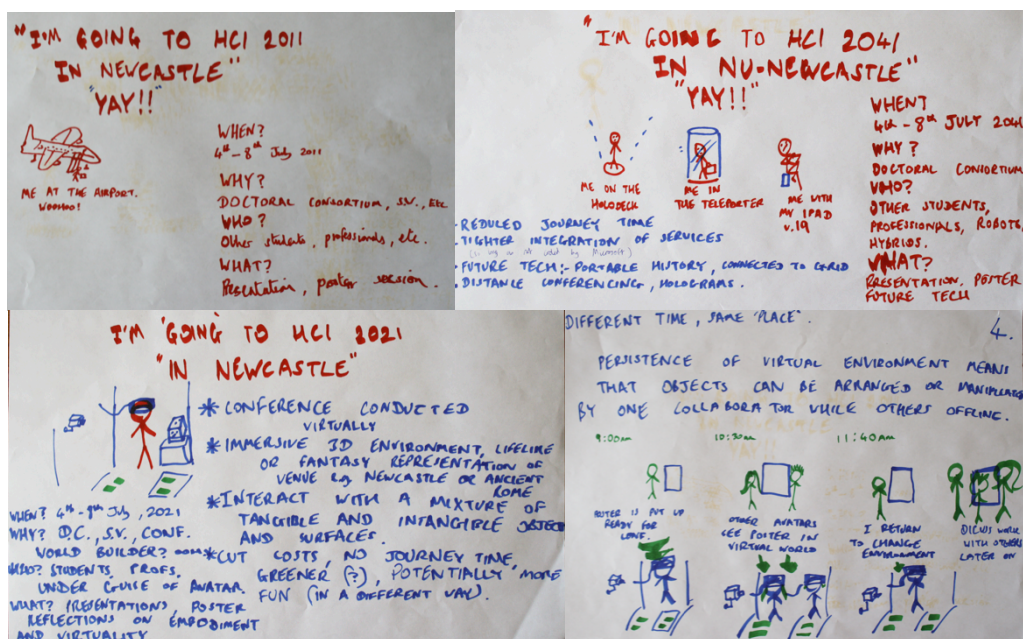 "I'M GOING TO HCI 2011
IN NEWCASTLE"
"YAY!!"
ME AT THE AIRPORT.
WOOHOO!
WHEN?
4th - 8th July 2011
WHY?
DOCTORAL CONSORTIUM, S.V., ETC
WHO?
Other students, professionals, etc.
WHAT?
Presentation, poster session.
"I'M GOING TO HCI 2041
IN NU-NEWCASTLE"
"YAY!!"
ME ON THE
HOLODECK
ME IN
THE TELEPORTER
ME WITH
MY IPAD
v.19
- REDUCED JOURNEY TIME
- TIGHTER INTEGRATION OF SERVICES
- FUTURE TECH:- PORTABLE HISTORY, CONNECTED TO GRID
- DISTANCE CONFERENCING, HOLOGRAMS.
WHEN?
4th - 8th JULY 2041
WHY?
DOCTORAL CONSORTIUM
WHO?
OTHER STUDENTS,
PROFESSIONALS, ROBOTS,
HYBRIDS.
WHAT?
PRESENTATION, POSTER
FUTURE TECH
I'M 'GOING' TO HCI 2021
"IN NEWCASTLE"
* CONFERENCE CONDUCTED
VIRTUALLY
* IMMERSIVE 3D ENVIRONMENT, LIFELIKE
OR FANTASY REPRESENTATION OF
VENUE e.g. NEWCASTLE OR ANCIENT
ROME
* INTERACT WITH A MIXTURE OF
TANGIBLE AND INTANGIBLE OBJECTS
AND SURFACES.
* CUT COSTS, NO JOURNEY TIME,
GREENER (?), POTENTIALLY MORE
FUN (IN A DIFFERENT WAY).
WHEN? 4th - 8th July, 2021
WHY? D.C., S.V., CONF.
WORLD BUILDER?
WHO? STUDENTS, PROFS,
UNDER GUISE OF AVATAR.
WHAT? PRESENTATIONS, POSTER
REFLECTIONS ON EMBODIMENT
AND VIRTUALITY
DIFFERENT TIME, SAME 'PLACE'.
4.
PERSISTENCE OF VIRTUAL ENVIRONMENT MEANS
THAT OBJECTS CAN BE ARRANGED OR MANIPULATED
BY ONE COLLABORATOR WHILE OTHERS OFFLINE.
9:00am
10:30am
11:40am
POSTER IS PUT UP
READY FOR
CONF.
OTHER AVATARS
SEE POSTER IN
VIRTUAL WORLD
I RETURN
TO CHANGE
ENVIRONMENT
DISCUSS WORK
WITH OTHERS
LATER ON